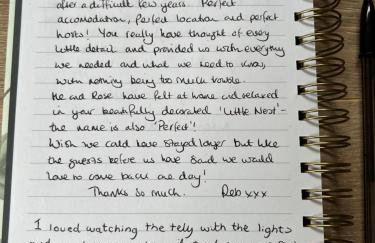 after a difficult few years. Perfect
accomodation, Perfect location and perfect
hosts! You really have thought of every
little detail and provided us with everything
we needed and what we need to know,
with nothing being too much trouble.
Me and Rose have felt at home and relaxed
in your beautifully decorated 'Little Nest' -
the name is also 'Perfect'!
Wish we could have stayed longer but like
the guests before us have said we would
love to come back one day!
Thanks so much. Reb xxx
I loved watching the telly with the lights